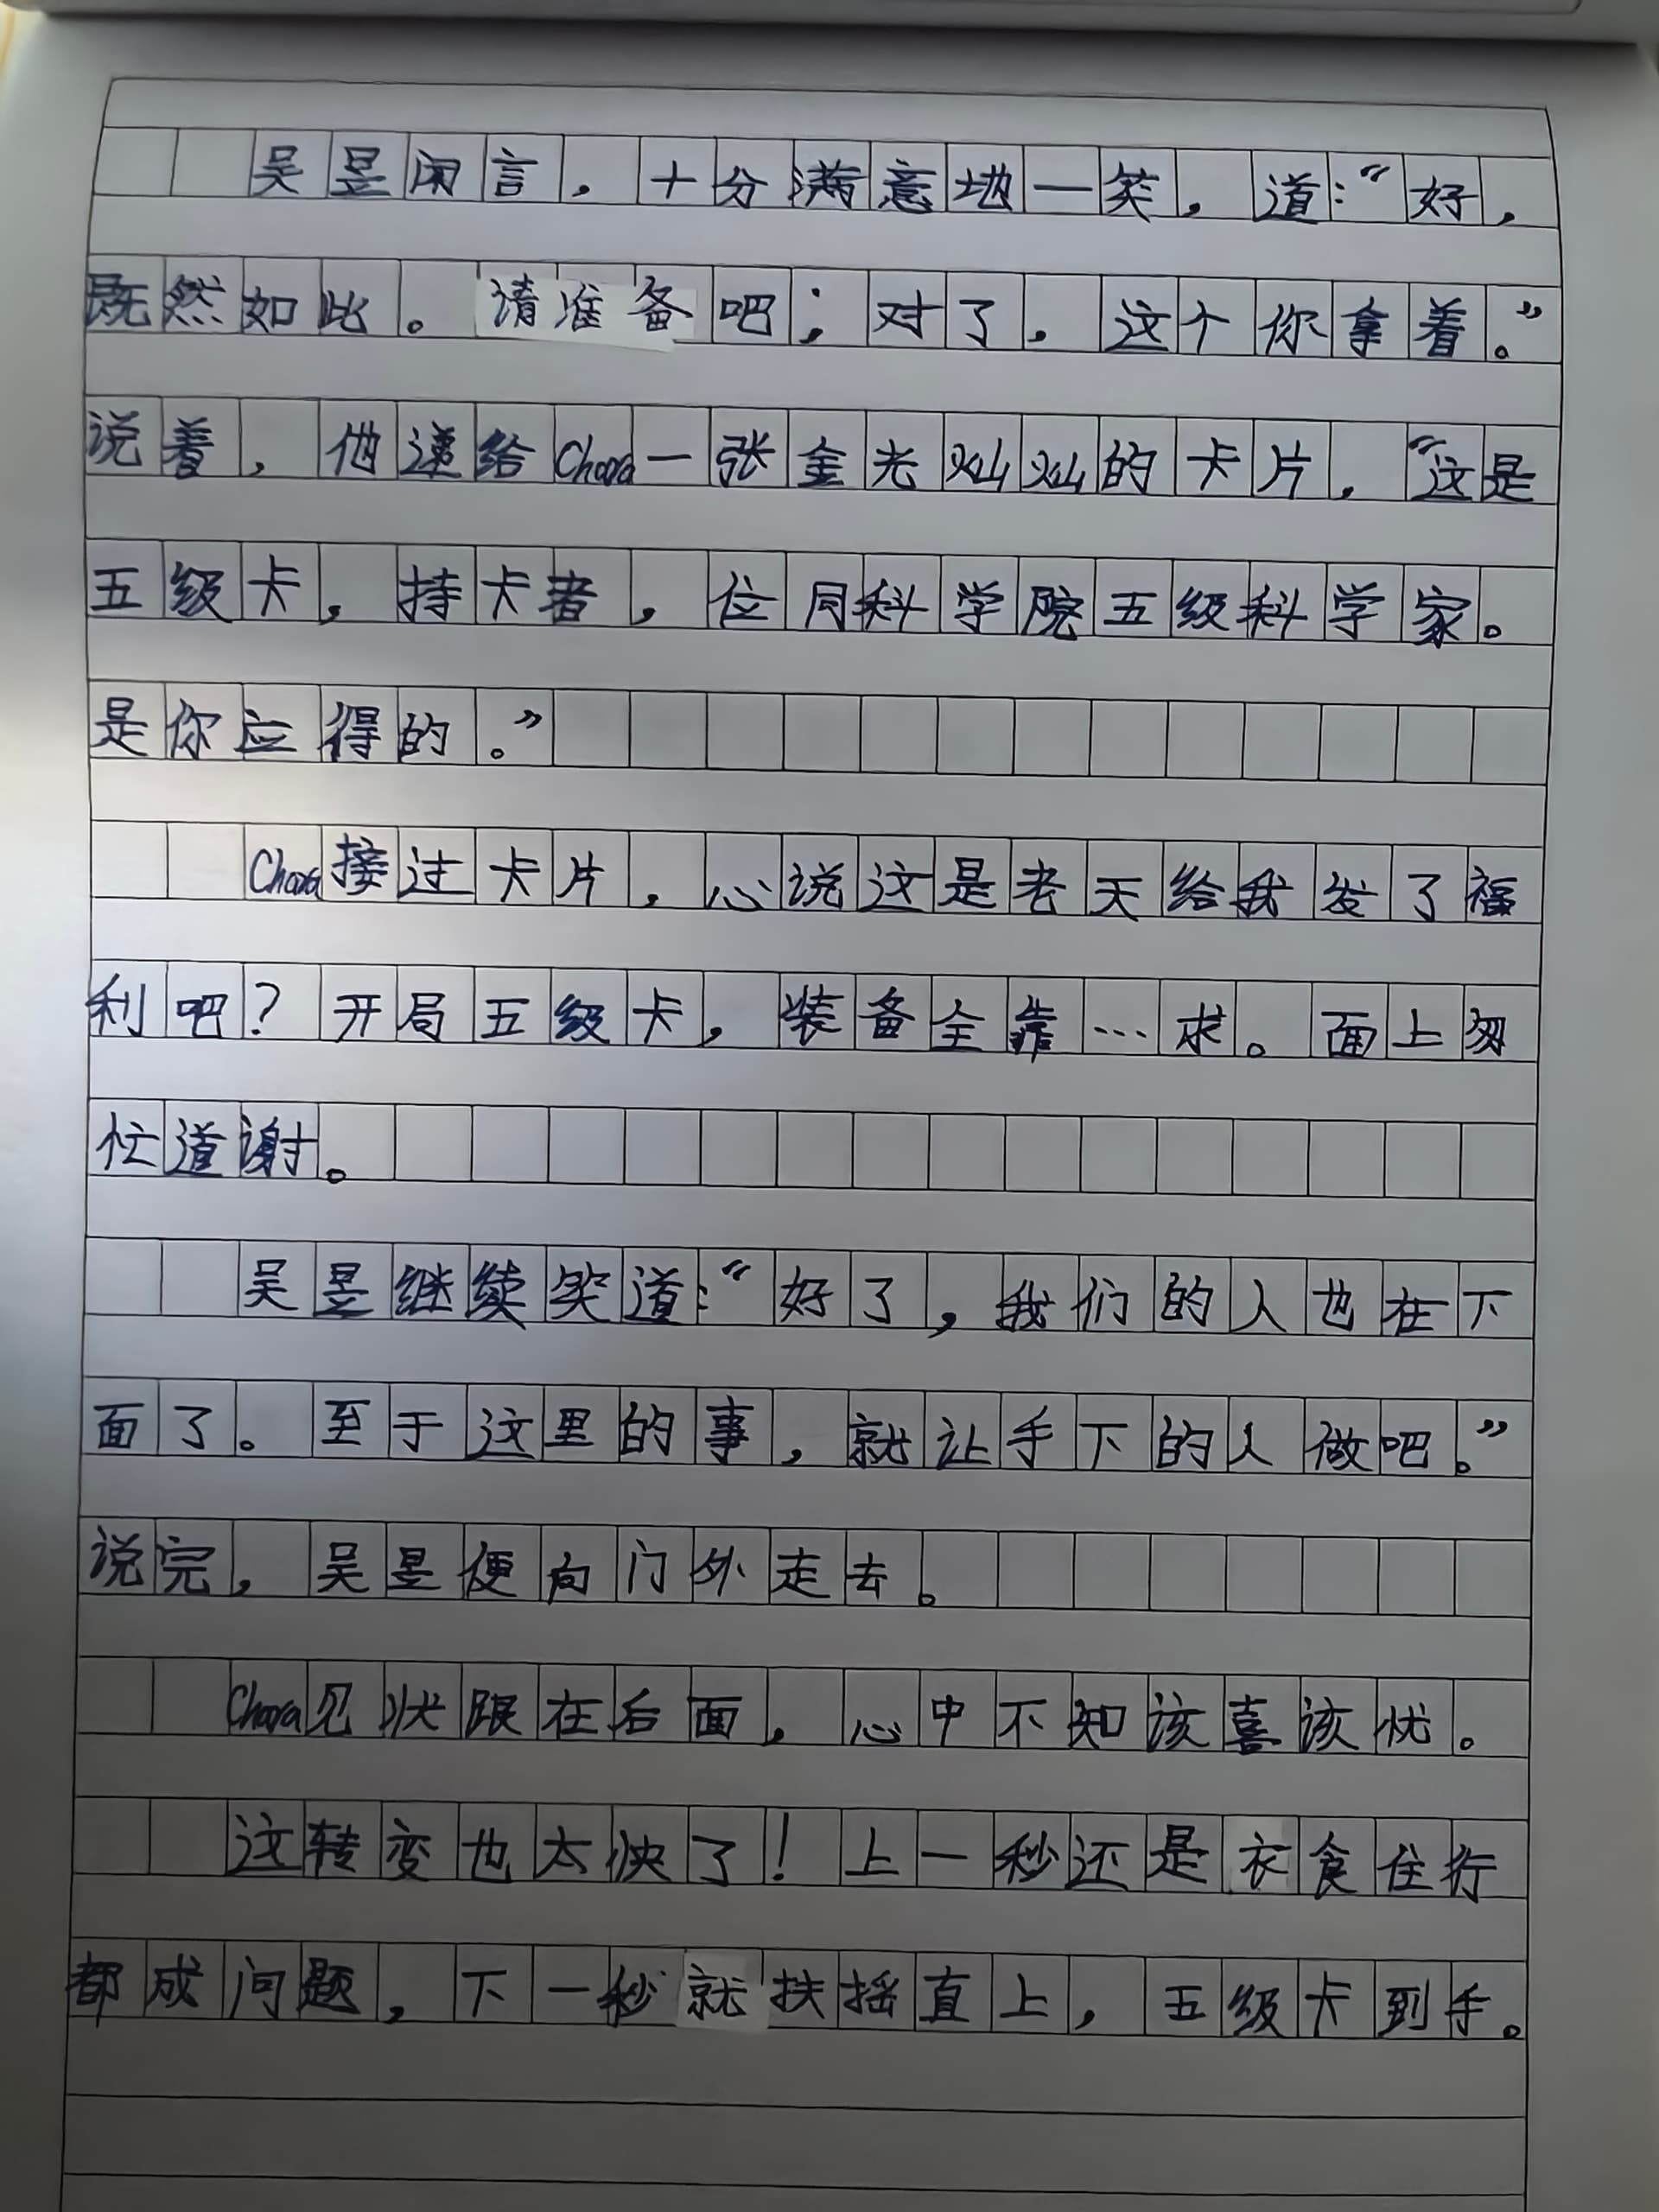 吴昱闻言，十分满意地一笑，道：“好，
既然如此。请准备吧；对了，这个你拿着。”
说着，他递给Chara一张金光灿灿的卡片，“这是
五级卡，持卡者，位同科学院五级科学家。
是你应得的。”
Chara接过卡片，心说这是老天给我发了福
利吧？开局五级卡，装备全靠…求。面上匆
忙道谢。
吴昱继续笑道：“好了，我们的人也在下
面了。至于这里的事，就让手下的人做吧。”
说完，吴昱便向门外走去。
Chara见状跟在后面，心中不知该喜该忧。
这转变也太快了！上一秒还是衣食住行
都成问题，下一秒就扶摇直上，五级卡到手。